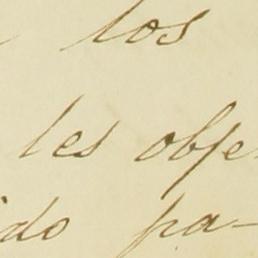 los
les obje
ido pa-